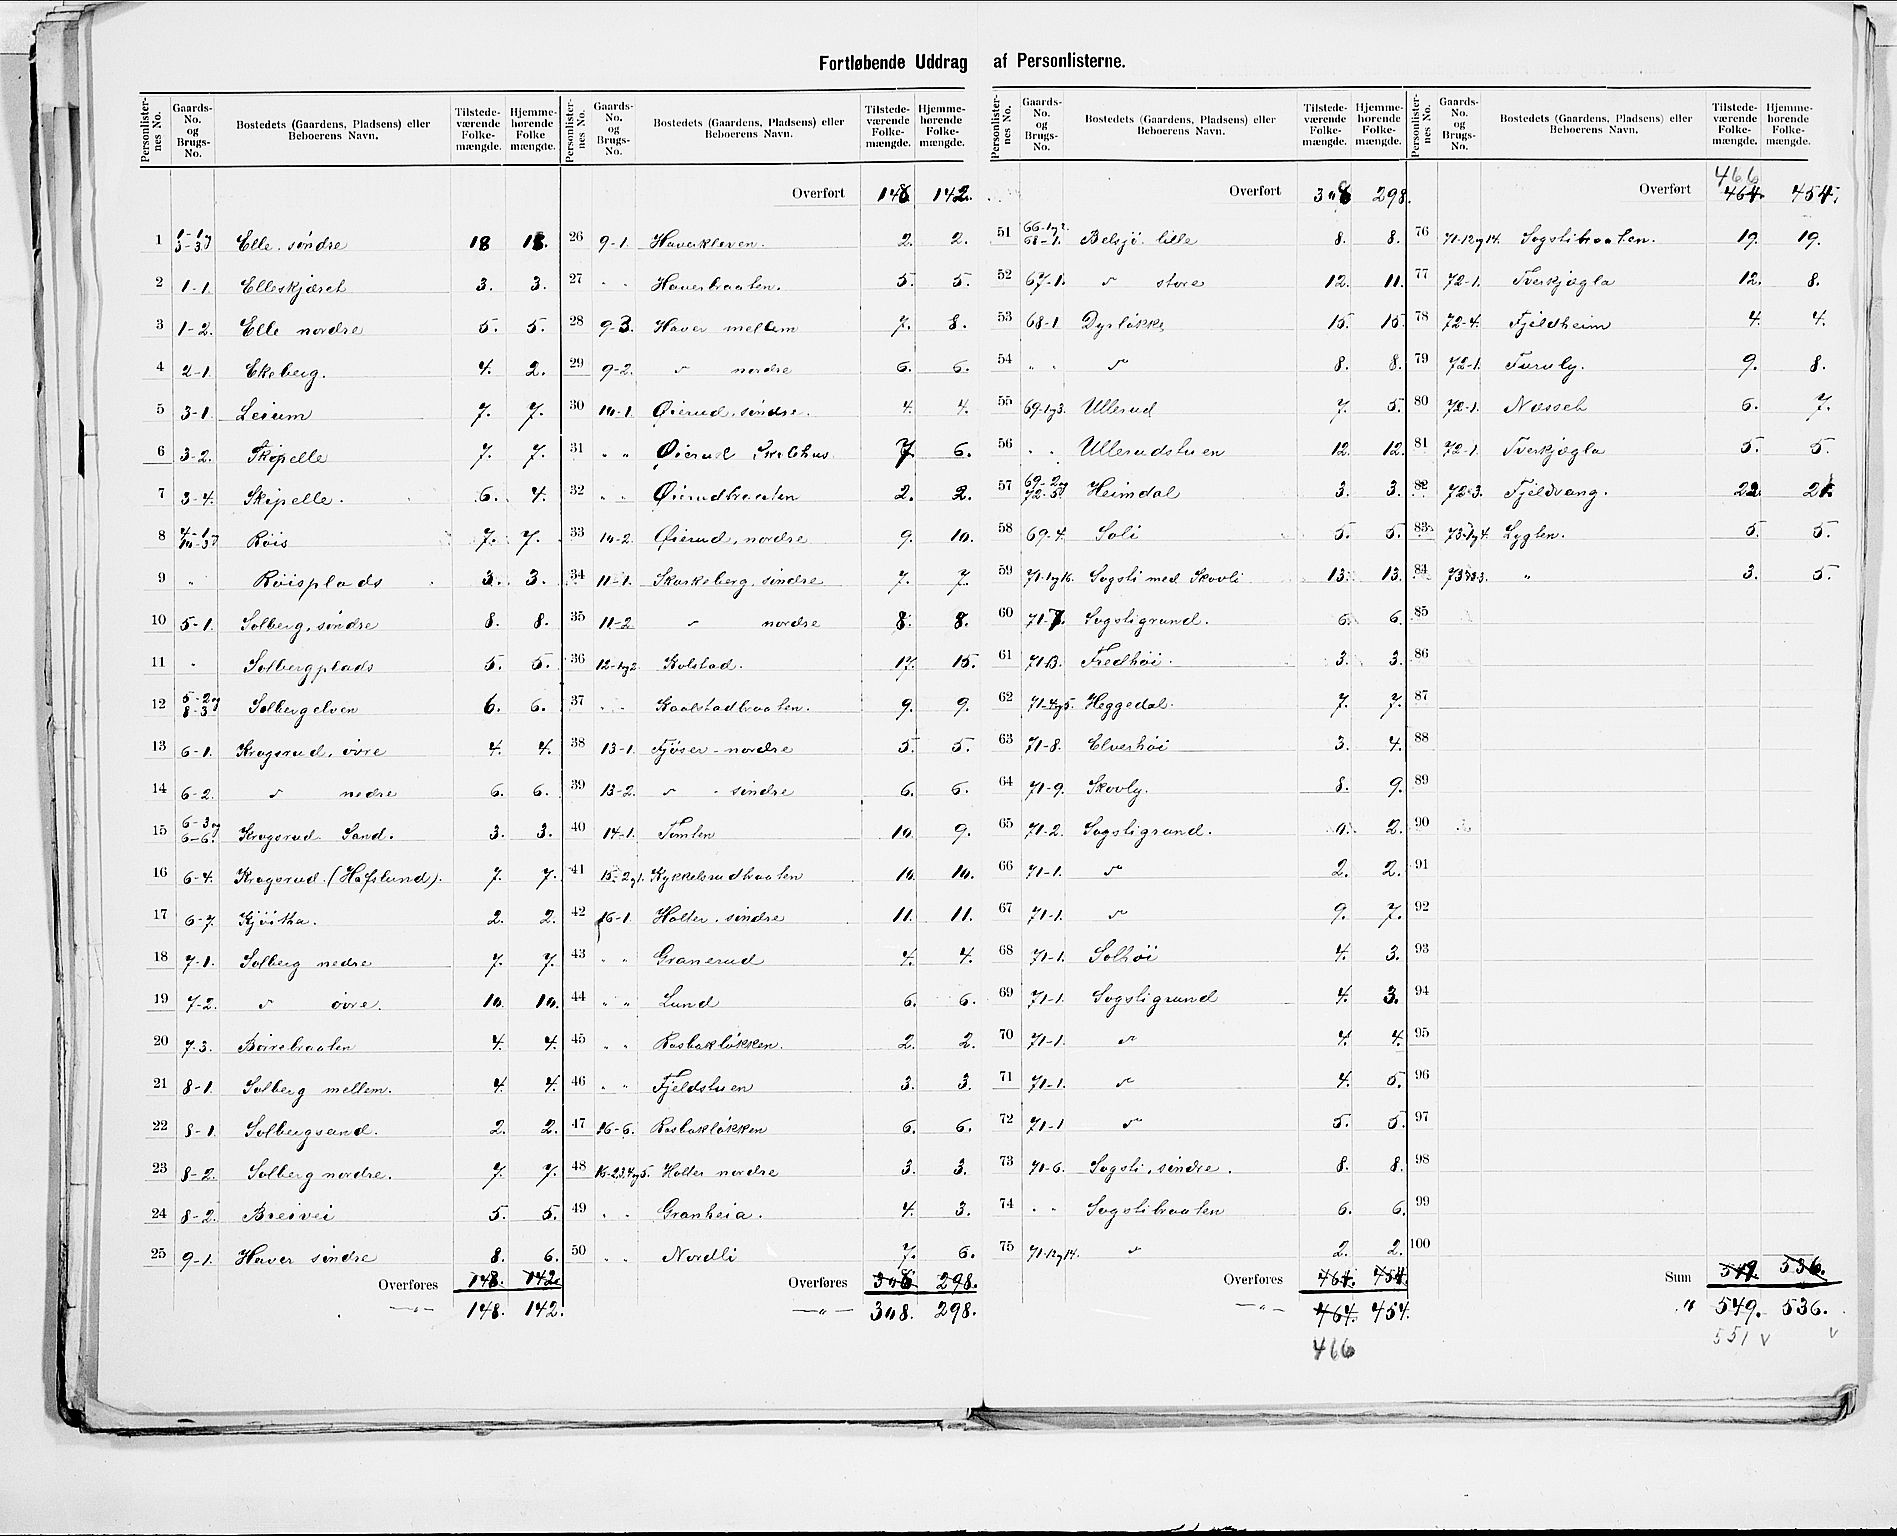 Fortløbende Uddrag af Personlisterne.
Personlisternes No. Gaards-No. og Brugs-No. Bostedets (Gaardens, Pladsens) eller Beboerens Navn. Tilstedeværende Folkemængde. Hjemmehørende Folkemængde.
1 1-1 og 3-3 Elle. søndre 18 18.
2 1-1. Elleskjæret 3. 3.
3 1-2. Elle nordre 5. 5.
4 2-1. Ekeberg. 4. 2.
5 3-1. Leium 7. 7.
6 3-2. Skipelle 7. 7.
7 3-4. Skipelle. 6. 4.
8 Røis 7. 7.
9 " Røisplads 3. 3.
10 5-1. Solberg, søndre 8. 8.
11 " Solbergplads 5. 5.
12 5-2 og 8-3 Solbergelven 6. 6.
13 6-1. Krogsrud, øvre 4. 4.
14 6-2. " nedre 6. 6.
15 6-3 og 6-6. Krogsrud Sand. 3. 3.
16 6-4. Krogsrud (Hafslund). 7. 7.
17 6-7. 2. 2.
18 7-1. Solberg nedre 7. 7.
19 7-2. " øvre. 10. 10.
20 7-3. 4. 4.
21 8-1. Solberg mellem. 4. 4.
22 8-1. Solbergsand. 2. 2.
23 8-2. Solberg nordre. 7. 7.
24 8-2. Breivei 5. 5.
25 9-1. Haver søndre 8. 6.
Overføres 148. 142.
—"— 148. 142.
Personlisternes No. Gaards-No. og Brugs-No. Bostedets (Gaardens, Pladsens) eller Beboerens Navn. Tilstedeværende Folkemængde. Hjemmehørende Folkemængde.
Overført 148 142.
26 9-1. Haverkleven. 2. 2.
27 " " Haverbraaten. 5. 5.
28 9-3. Haver mellem 7. 8.
29 9-2. " nordre 6. 6.
30 10-1. Øierud, søndre. 4. 4.
31 " " Øierud 7 6.
32 " " Øierudbraaten 2. 2.
33 10-2. Øierud, nordre 9. 10.
34 11-1. Skorkeberg, søndre 7. 7.
35 11-2 " nordre 8. 8.
36 12-1 og 2. Kolstad. 17. 15.
37 " " Kaalstadbraaten. 9. 9.
38 13-1. Fjøser - nordre 5. 5.
39 13-2. " - søndre 6. 6.
40 14-1. Tømten 10. 9.
41 Kykkelsrudbraaten 10. 10.
42 16-1. Holter. søndre 11. 11.
43 " " Granerud 4. 4.
44 " " Lund 6. 6.
45 " " Rosbakløkken. 2. 2.
46 " " Fjeldstuen 3. 3.
47 16-6. Rosbakløkken 6. 6.
48 16-2.3.4 og 5. Holter nordre 3. 3.
49 " " Granheia. 4. 3.
50 " " Nordli 7. 6.
Overføres 308 298.
—"— 308. 298.
Personlisternes No. Gaards-No. og Brugs-No. Bostedets (Gaardens, Pladsens) eller Beboerens Navn. Tilstedeværende Folkemængde. Hjemmehørende Folkemængde.
Overført 308 298.
51 66-1 og 2. 68-1. Belsjø. lille 8. 8.
52 67-1. " store 12. 11.
53 68-1. Dyrløkke 15. 15.
54 " " " 8. 8.
55 69-1 og 3. Ullerud 7. 5.
56 " " Ullerudstuen 12. 12.
57 69-2 og 72-5 Heimdal 3. 3.
58 69-4. Soli 5. 5.
59 71-1 og 16. Sogsti med Skovli 13. 13.
60 71-7. Sogstigrund. 6. 6.
61 71-13. Fredhøi. 3. 3.
62 71-4 og 5. Heggedal. 7. 7.
63 71-8. Elverhøi 3. 4.
64 71-9. Skovly. 8. 9.
65 71-2. Sogstigrund. 2.
66 71-1. " 2. 2.
67 71-1. " 9. 7.
68 71-1. Solhøi 4. 3.
69 71-1. Sogstigrund 4. 3.
70 71-1. " 4. 4.
71 71-1. " 4. 5.
72 71-1 " 5. 5.
73 71-6. Sogsti, søndre. 8. 8.
74 " " Sogstibraaten 6. 6.
75 71-12 og 14. " 2. 2.
Overføres 464. 454.
—"— 464. 454.
466
Personlisternes No. Gaards-No. og Brugs-No. Bostedets (Gaardens, Pladsens) eller Beboerens Navn. Tilstedeværende Folkemængde. Hjemmehørende Folkemængde.
466
Overført 464. 454.
76 71-12 og 14. Sogstibraaten. 19. 19.
77 72-1. Tverkjægla 12. 8.
78 72-4. Fjeldheim 4. 4.
79 72-1. Furuly. 9. 8.
80 72-1. Næsset 6. 7.
81 72-1. Tverkjægla 5. 5.
82 72-3. Fjeldvang. 22. 21.
83 73-1 og 4. Lyglen. 5. 5.
84 " 3. 5.
85
86
87
88
89
90
91
92
93
94
95
96
97
98
99
100
Sum 549. 536.
" 549. 536.
551 v v